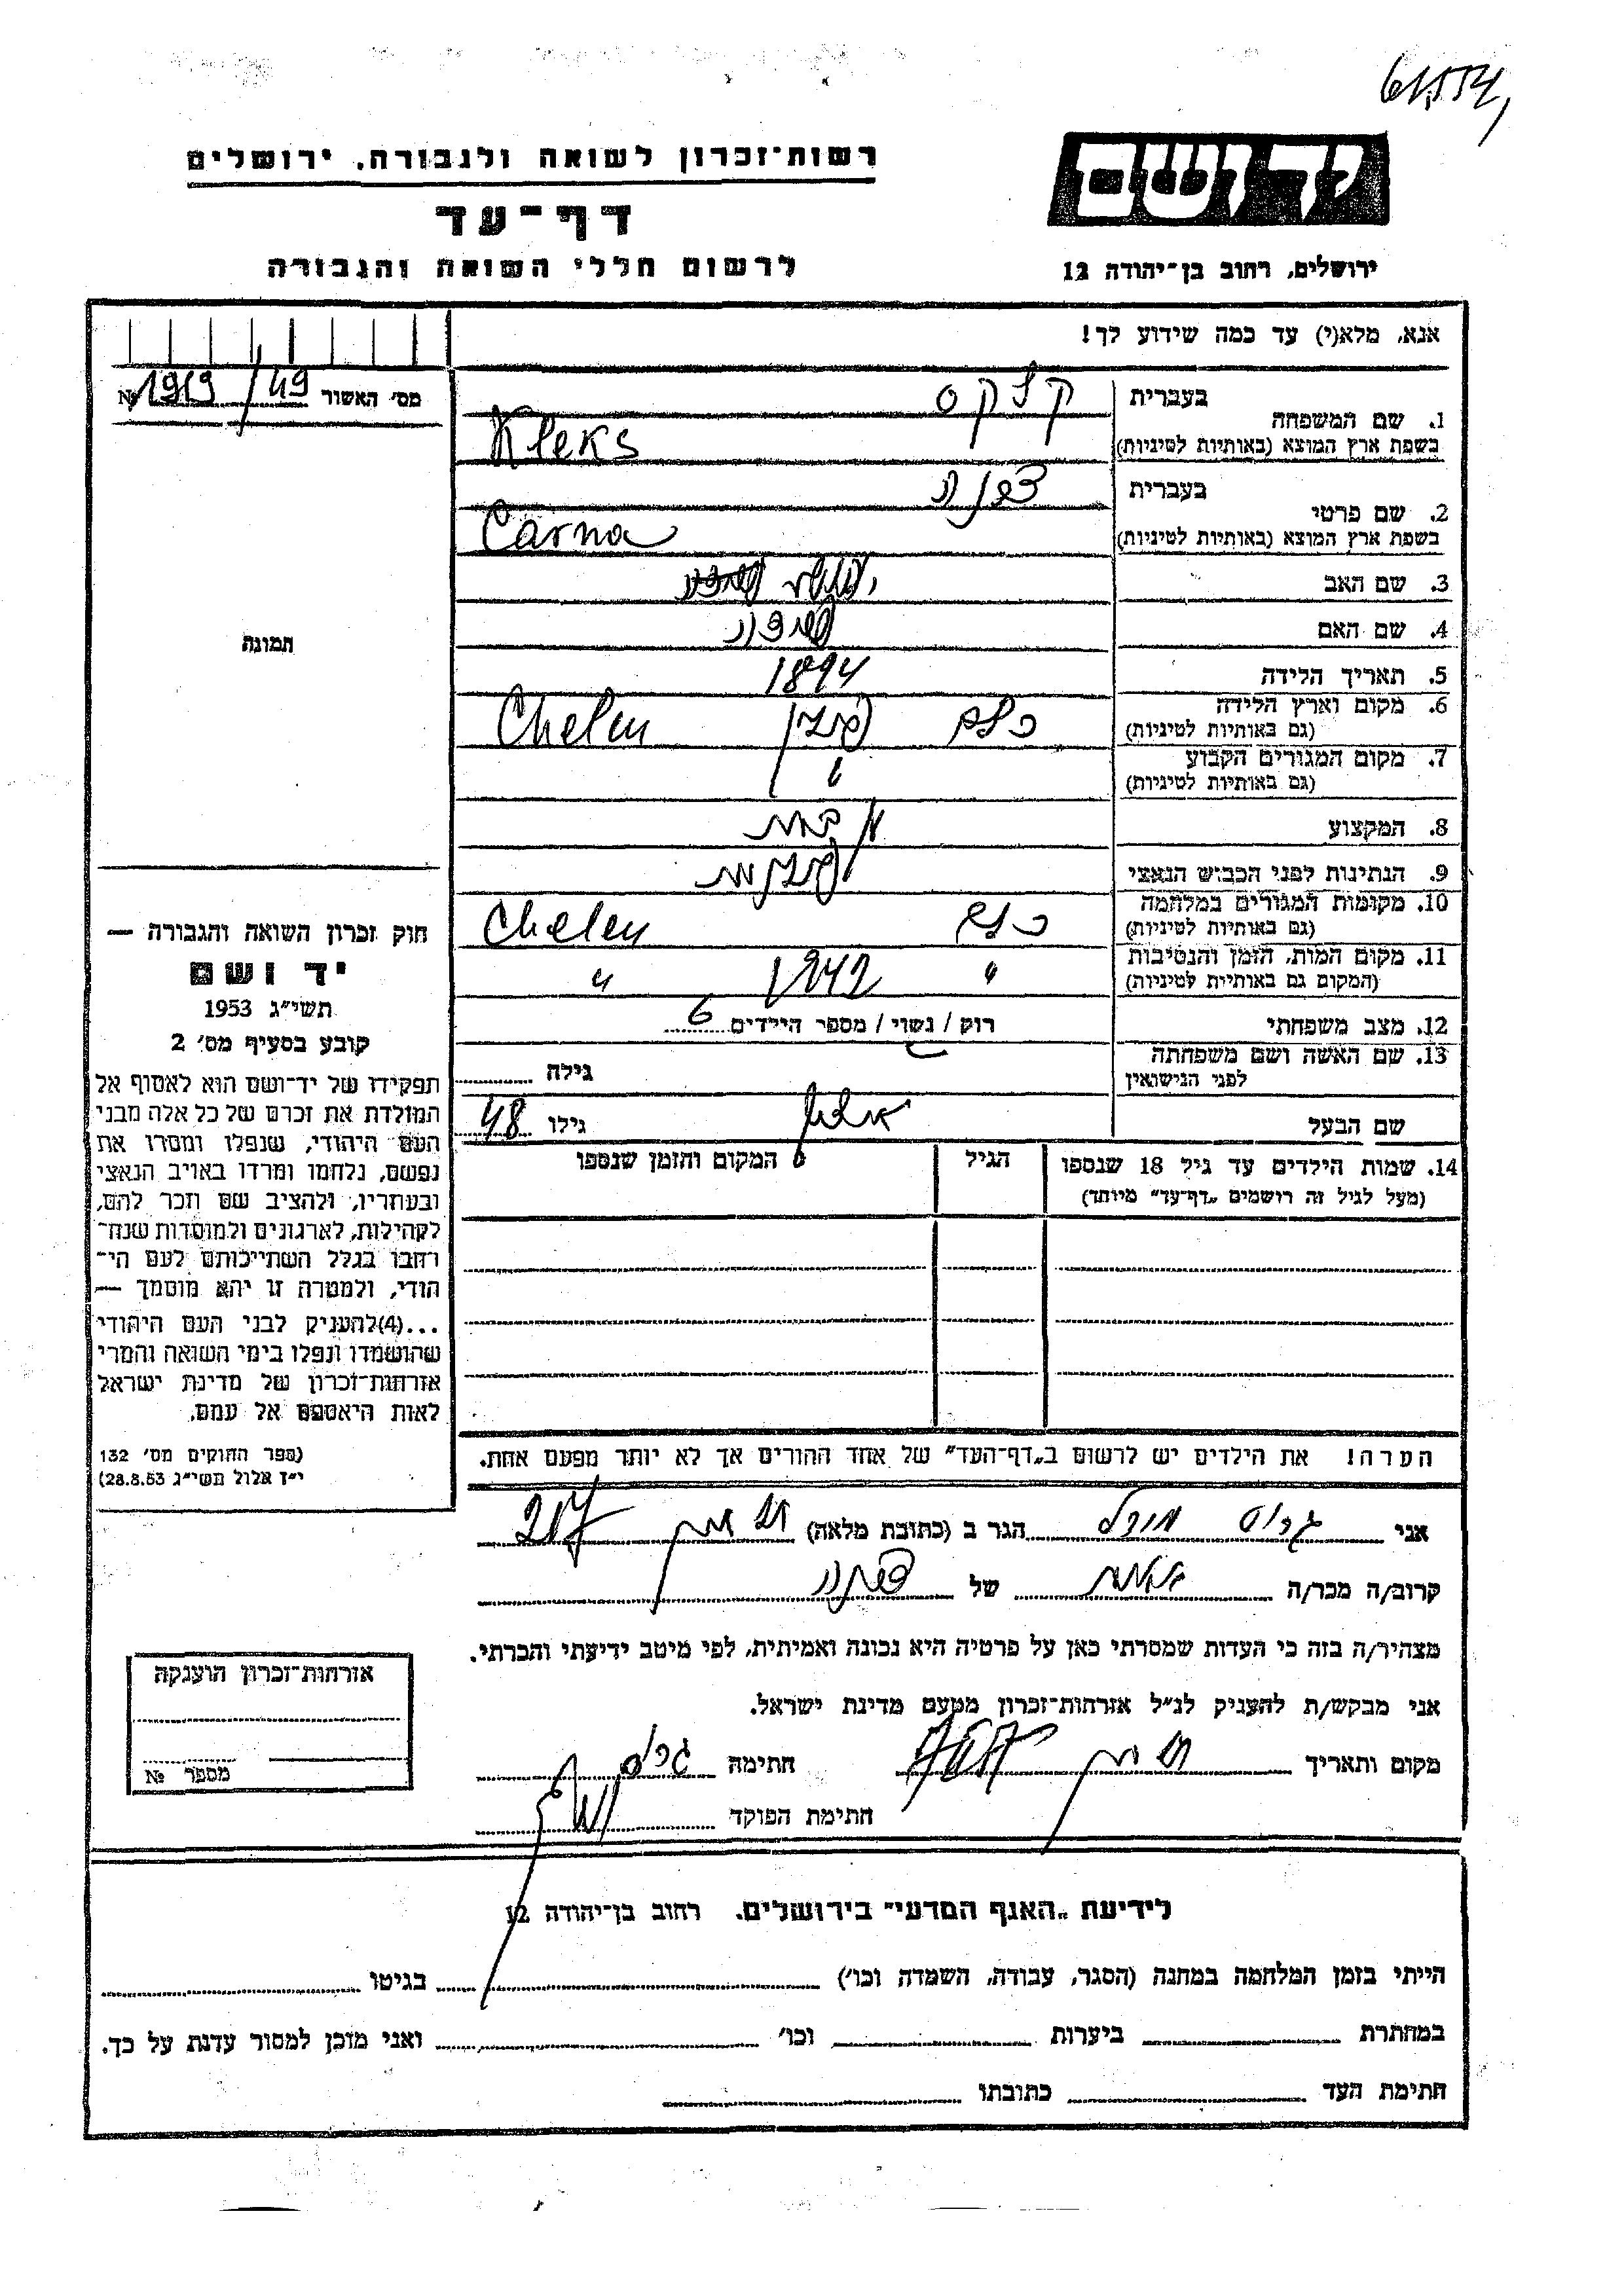 רשות־זכרון לשואה ולגבורה. ירושלים
דף־עד
לרשום חללי השואה והגבורה
יד ושם
ירושלים, רחוב בן־יהודה 12
אנא, מלא(י) עד כמה שידוע לך!
מס׳ האשור 49/1919 №
תמונה
חוק זכרון השואה והגבורה —
יד ושם
תשי״ג 1953
קובע בסעיף מס׳ 2
תפקידו של יד־ושם הוא לאסוף אל
המולדת את זכרם של כל אלה מבני
העם היהודי, שנפלו ומסרו את
נפשם, נלחמו ומרדו באויב הנאצי
ובעוזריו, ולהציב שם וזכר להם,
לקהילות, לארגונים ולמוסדות שנח־
רחבו בגלל השתייכותם לעם הי־
הודי, ולמטרה זו יהא מוסמך —
...(4)להעניק לבני העם היהודי
שהושמדו ונפלו בימי השואה והמרי
אזרחות־זכרון של מדינת ישראל
לאות היאספם אל עמם.
(ספר החוקים מס׳ 132
י״ז אלול תשי״ג 28.8.53)
בעברית קלקס
1. שם המשפחה
בשפת ארץ המוצא (באותיות לטיניות) Kleks
בעברית
2. שם פרטי
בשפת ארץ המוצא (באותיות לטיניות) Carna
3. שם האב
4. שם האם
5. תאריך הלידה 1894
6. מקום וארץ הלידה חלם פולין Chelem
(גם באותיות לטיניות)
7. מקום המגורים הקבוע "
(גם באותיות לטיניות)
8. המקצוע
9. הנתינות לפני הכבוש הנאצי פולנית
10. מקומות המגורים במלחמה חלם Chelem
(גם באותיות לטיניות)
11. מקום המות, הזמן והנסיבות " 1942 "
(המקום גם באותיות לטיניות)
12. מצב משפחתי רוק / נשוי / מספר היילדים 6
13. שם האשה ושם משפחתה גילה
לפני הנישואין
שם הבעל גילו 48
14. שמות הילדים עד גיל 18 שנספו הגיל המקום והזמן שנספו
(מעל לגיל זה רושמים „דף־עד״ מיוחד)
הערה! את הילדים יש לרשום ב„דף־העד״ של אחד ההורים אך לא יותר מפעם אחת.
אני הגר ב (כתובת מלאה)
קרוב/ה מכר/ה של
מצהיר/ה בזה כי העדות שמסרתי כאן על פרטיה היא נכונה ואמיתית, לפי מיטב ידיעתי והכרתי.
אני מבקש/ת להעניק לנ״ל אזרחות־זכרון מטעם מדינת ישראל.
מקום ותאריך חתימה
חתימת הפוקד
אזרחות־זכרון הוענקה
מספר №
לידיעת „האגף המדעי״ בירושלים. רחוב בן־יהודה 12
הייתי בזמן המלחמה במחנה (הסגר, עבודה, השמדה וכו׳) בגיטו
במחתרת ביערות וכו׳ ואני מוכן למסור עדות על כך.
חתימת העד כתובתו